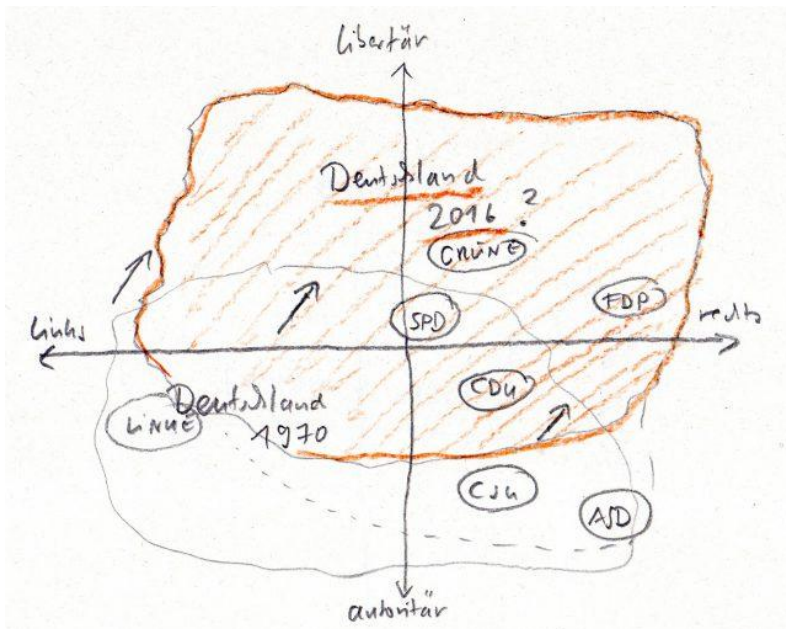 libertär
Deutschland
2016?
GRÜNE
SPD
FDP
links
rechts
CDU
Deutschland
1970
LINKE
CSU
AfD
autoritär